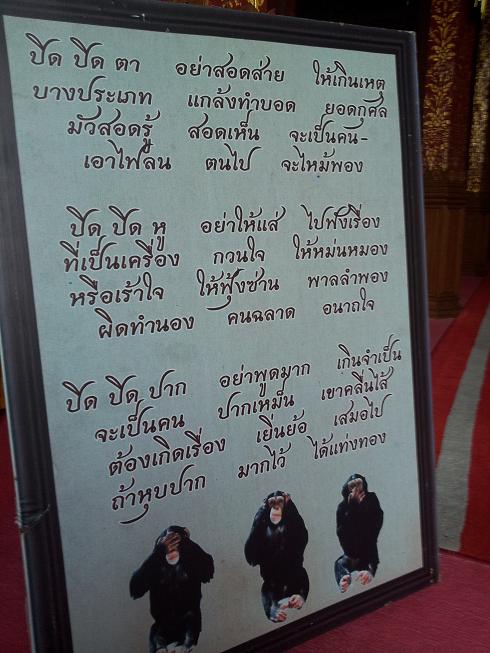 ปิด ปิด ตา อย่าสอดส่าย ให้เกินเหตุ
บางประเภท แกล้งทำบอด ยอดกุศล
มัวสอดรู้ สอดเห็น จะเป็นคน-
เอาไฟลน ตนไป จะไหม้พอง
ปิด ปิด หู อย่าให้แส่ ไปฟังเรื่อง
ที่เป็นเครื่อง กวนใจ ให้หม่นหมอง
หรือเร้าใจ ให้ฟุ้งซ่าน พาลลำพอง
ผิดทำนอง คนฉลาด อนาถใจ
ปิด ปิด ปาก อย่าพูดมาก เกินจำเป็น
จะเป็นคน ปากเหม็น เขาคลื่นไส้
ต้องเกิดเรื่อง เยิ่นย้อ เสมอไป
ถ้าหุบปาก มากไว้ ได้แท่งทอง